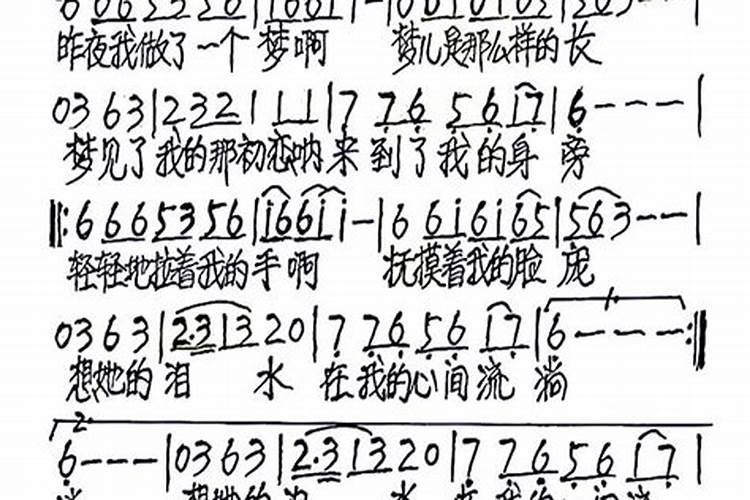 6 6 6 5 3 5 6 | i 6 6 i i - | 6 6 i 6 i 6 5 | 5 6 3 - - |
昨夜我做了一个 梦啊 梦儿是那么样的长
0 3 6 3 | 2 3 2 1 1 1 | 7 7 6 5 6 1 7 | 6 - - - |
梦见了我的那初恋呐来到了我的身 旁
‖: 6 6 6 5 3 5 6 | i 6 6 i i - | 6 6 i 6 i 6 5 | 5 6 3 - - |
轻轻地拉着我的手啊 抚摸着我的脸 庞
0 3 6 3 | 2·3 1 3 2 0 | 7 7 6 5 6 1 7 | 6 - - - :‖
想她的泪 水 在我的心间流 淌
2.
6 - - - | 0 3 6 3 | 2·3 1 3 2 0 | 7 7 6 5 6 1 7 |
淌 想她的泪 水 在我的心间流